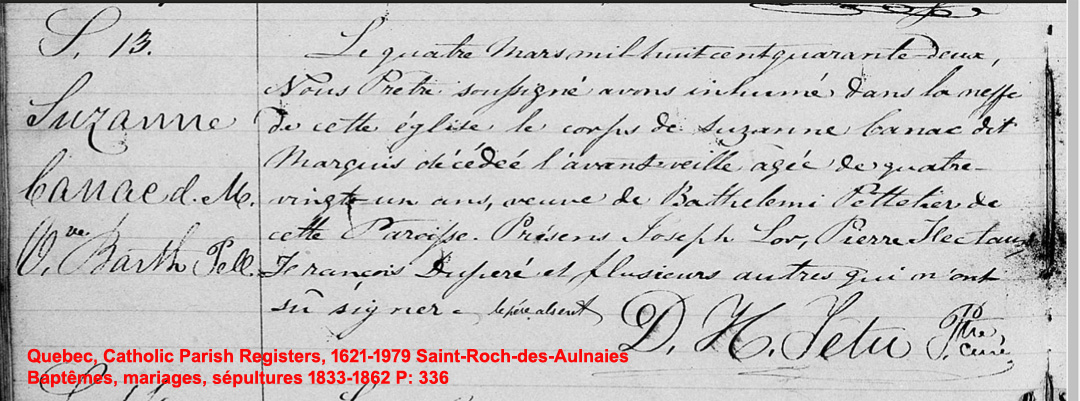 S. 13.
Suzanne
Canac d. M.
Vve Barth Pell.
Le quatre Mars mil huit cent quarante-deux,
Nous Prêtre soussigné avons inhumé dans la neffe
de cette église le corps de Suzanne Canac dit
Marquis décédée l'avant-veille agée de quatre-
vingt-un ans, veuve de Bathelemi Pelletier de
cette Paroisse. Présens Joseph Lov, Pierre
François Duperé et plusieurs autres qui n'ont
sû signer.
D. H. Tetu Ptre
curé
Quebec, Catholic Parish Registers, 1621-1979 Saint-Roch-des-Aulnaies
Baptêmes, mariages, sépultures 1833-1862 P: 336